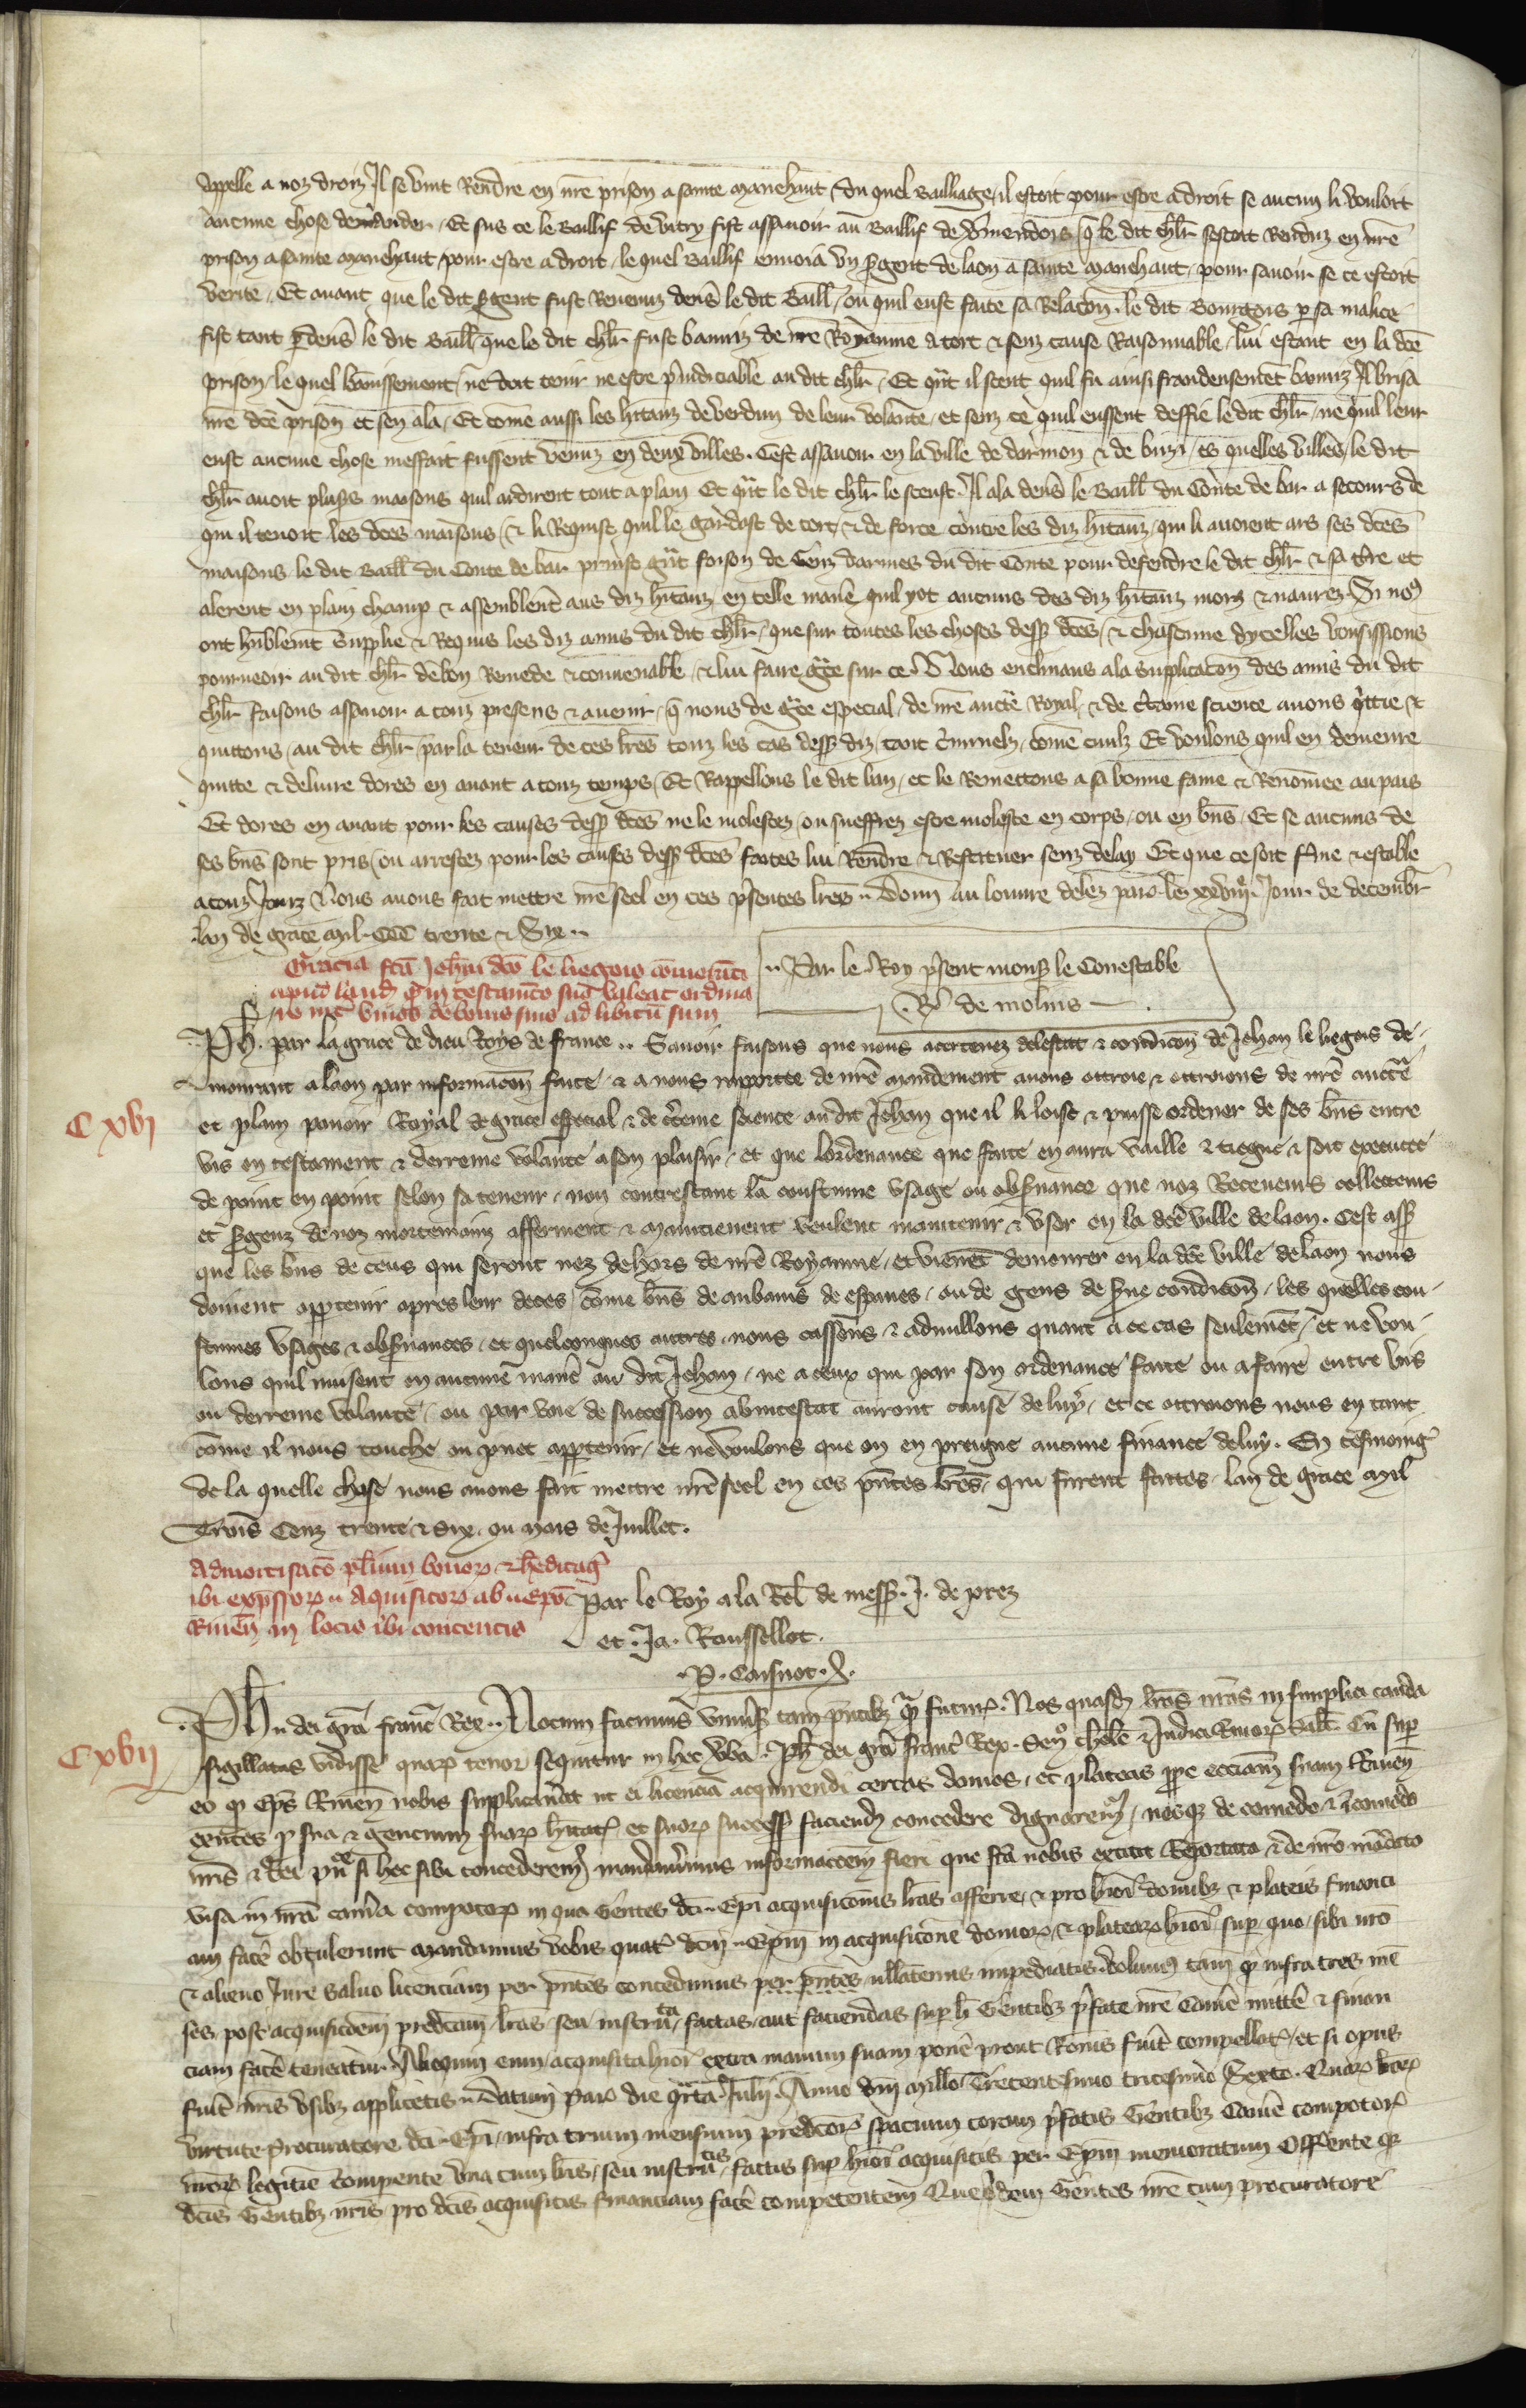 appelle a noz droiz Il se vint Rendre en nre prison a sainte manehaut du quel Bailliage il estoit pour estre a droit se aucun li vouloit
aucune chose demander. Et sus ce le Baillif de vitry fist assavoir au Baillif de vermendois q le dit chlr sestoit Renduz en nre
prison a sainte manehaut pour estre a droit. le quel Baillif envoia un sergent de laon a sainte manehaut pour savoir se ce estoit
verite. Et avant que le dit sergent fust Revenuz devs le dit Baill ou quil eust faite sa Relacon. le dit Bourgois p sa malice
fist tant p devs le dit Baill que le dit chlr fust banniz de nre Royaume a tort & senz cause Raisonnable. lui estant en la dce
prison. le quel bannissement ne doit tenir ne estre piudiciable au dit chlr. Et qnt il scent quil fu ainsi banniz Il brisa
nre dce prison et sen ala. Et come aussi les hitanz de verdun de leur volante. et senz ce quil eussent deffie le dit chlr. ne quil leur
eust aucune chose meffait fussent venuz en deux villes. Cest assavoir en la ville de darmon & de . es quelles villes le dit
chlr avoit plusrs maisons quil ardirent tout a plain Et qnt le dit chlr le sceust. Il ala devs le Baill du Conte de bar a secours de
qui il tenoit les dces maisons. & li Requist quil le gardast de tort & de force contre les diz hitanz. qui li avoient ars ses dces
maisons. le dit Baill du Conte de bar prinst gnt foison de Genz darmes du dit Conte pour defendre le dit chlr & sa tre et
alerent en plain champ & assemblent aus diz hitanz en telle manie quil yot aucuns des diz hitanz mors & navrez. Si no9
ont humblemt Supplie & Requis les diz amis du dit chlr. que sur toutes les choses dess dces. & chascune dycelles vousissions
pourveoir au dit chlr de bon Remede & convenable. & lui faire grace sur ce. Nous enclinans a la Supplicacon des amis du dit
chlr faisons assavoir a touz presens & avenir. q nous de grce especial. de nre aucte Royal & de certaine science avons qittie &
quittons au dit chlr par la teneur de ces lres touz les cas dess diz. tant criminelz come civilz Et voulons quil en demeure
quitte & delivre dores en avant a touz temps. Et Rappellons le dit ban. et le Remettons a sa bonne fame & Renomee au pais
Et dores en avant pour les causes dess dces ne le molestez ou sueffrez estre moleste en corps ou en bns. Et se aucuns de
ses bns sont pris ou arrestez pour les causes dess dces faites lui Rendre & Restituer senz delay Et que ce soit ferme & estable
a touz Jourz Nous avons fait mettre nre seel en ces psentes lres. Donn au louvre delez paris le xxviii Jour de decembr
lan de grace mil. CCC trente & Six..
Gracia fca Johni dco le liegois comoranti
apud laud q in testamto suo valeat ordina
re int vivos de bonis suis ad libitu suum
.. Par le Roy psent mons le Conestable
. R de molins
Ph. par la grace de dieu Roys de france .. Savoir faisons que nous acertenez delestat & condicon de Jehan le liegois de-
mourant a laon par informacon faite & a nous raportee de nre mandement avons ottroie & ottroions de nre aucte
C xvi
et plain povoir Royal de grace especial & de certeine science au dit Jehan que il li loise & puisse ordener de ses bns entre
vis en testament & derreine volante a son plaisir. et que lordenance que faite en aura vaille & tiegne & soit executee
de point en point selon sa teneur. non contrestant la coustume usage ou observance que noz Receveurs collecteurs
et sergenz de noz mortemains afferment & maintienent veulent maintenir & user en la dce ville de laon. Cest ass
que les bns de ceus qui seront nez dehors de nre Royaume. et vienent demourer en la dce ville de laon nous
doivent appartenir apres leur deces. come bns de aubains de espaves. ou de gens de serve condicon. les quelles cou-
stumes usages & observances. et quelconques autres nous cassons. & adnullons quant a ce cas seulemet. et ne vou-
lons quil nuisent en aucune manie au dit Jehan. ne a ceux qui par son ordenance faite ou a faire entre vis
ou derreine volante. ou par voie de succession abintestat auront cause de luy. et ce ottroions nous en tant
come il nous touche ou puet appartenir. et ne voulons que on en preigne aucune finance de luy. En tesmoing
de la quelle chose nous avons fait mettre nre seel en ces pntes lres. qui furent faites lan de grace mil
Trois Cenz trente & Six. ou mois de Juillet.
Admortisaco plium bonor & heditag
ibi expssor .. Aquisitor ab .. epo
Rmen in locis ibi contentis
Par le Roy a la Rel de mess. J. de prez
et. Ja. Rousselot.
. P. Caisnot. X.
Ph .. dei gra franc Rex .. Notum facimus univsis tam pntibz q futuris. Nos quasd lras nras in simplici cauda
C xvii
sigillatas vidisse quar tenor sequitur in hec vba. Ph dei gra franc Rex. Sen & Judici Salt. Cu sup
eo q Eps Rmen nobis supplicavit ut ei licencia acquirendi certas domos. et plateas ppe ecciam suam Rmen
eentes p sua & gencium suar hitac. et suor success faciend concedere dignarem. nosq de comodo & incomodo
nris & Rei pue si hec sibi concederem mandavimus informacoem fieri que fca nobis extitit Reportata & de nro mandato
visa in nra cama compotor in qua Gentes dci .. Epi acquisicois lras afferre. & pro hiusi domibz & plateis financi
am face obtulerunt Mandamus vobis quat dcm .. Epm in acquisicione domor. & platear hiusi sup quo sibi nro
& alieno Jure salvo licenciam per pntes concedimus per pntes nllatenus impediatis volum tam q infra tres me
ses post acquisicoem predcam lras seu instru ta factas aut faciendas sup h Gentibz pfate nre Came mitte & finan
ciam face teneatur. Alioquin eum acquisita hiusi extra manum suam pone prout Rois fuit compellatis. et si opus
fuit nris usibz applicetis. Datum paris die qrta Julii. Anno dni millo Trecentesimo tricesimo Sexto. Quar lrar
virtute Procuratore dci .. Epi. infra trium mensium predcor spacium coram pfatis Gentibz Came compotor
nror legitie compente una cum lris. seu instru tis factis sup hiusi acquisitis per Epm memoratum Offerente q
dcis Gentibz nris pro dcis acquisitis financiam face competentem Quequidem Gentes nre cum procuratore